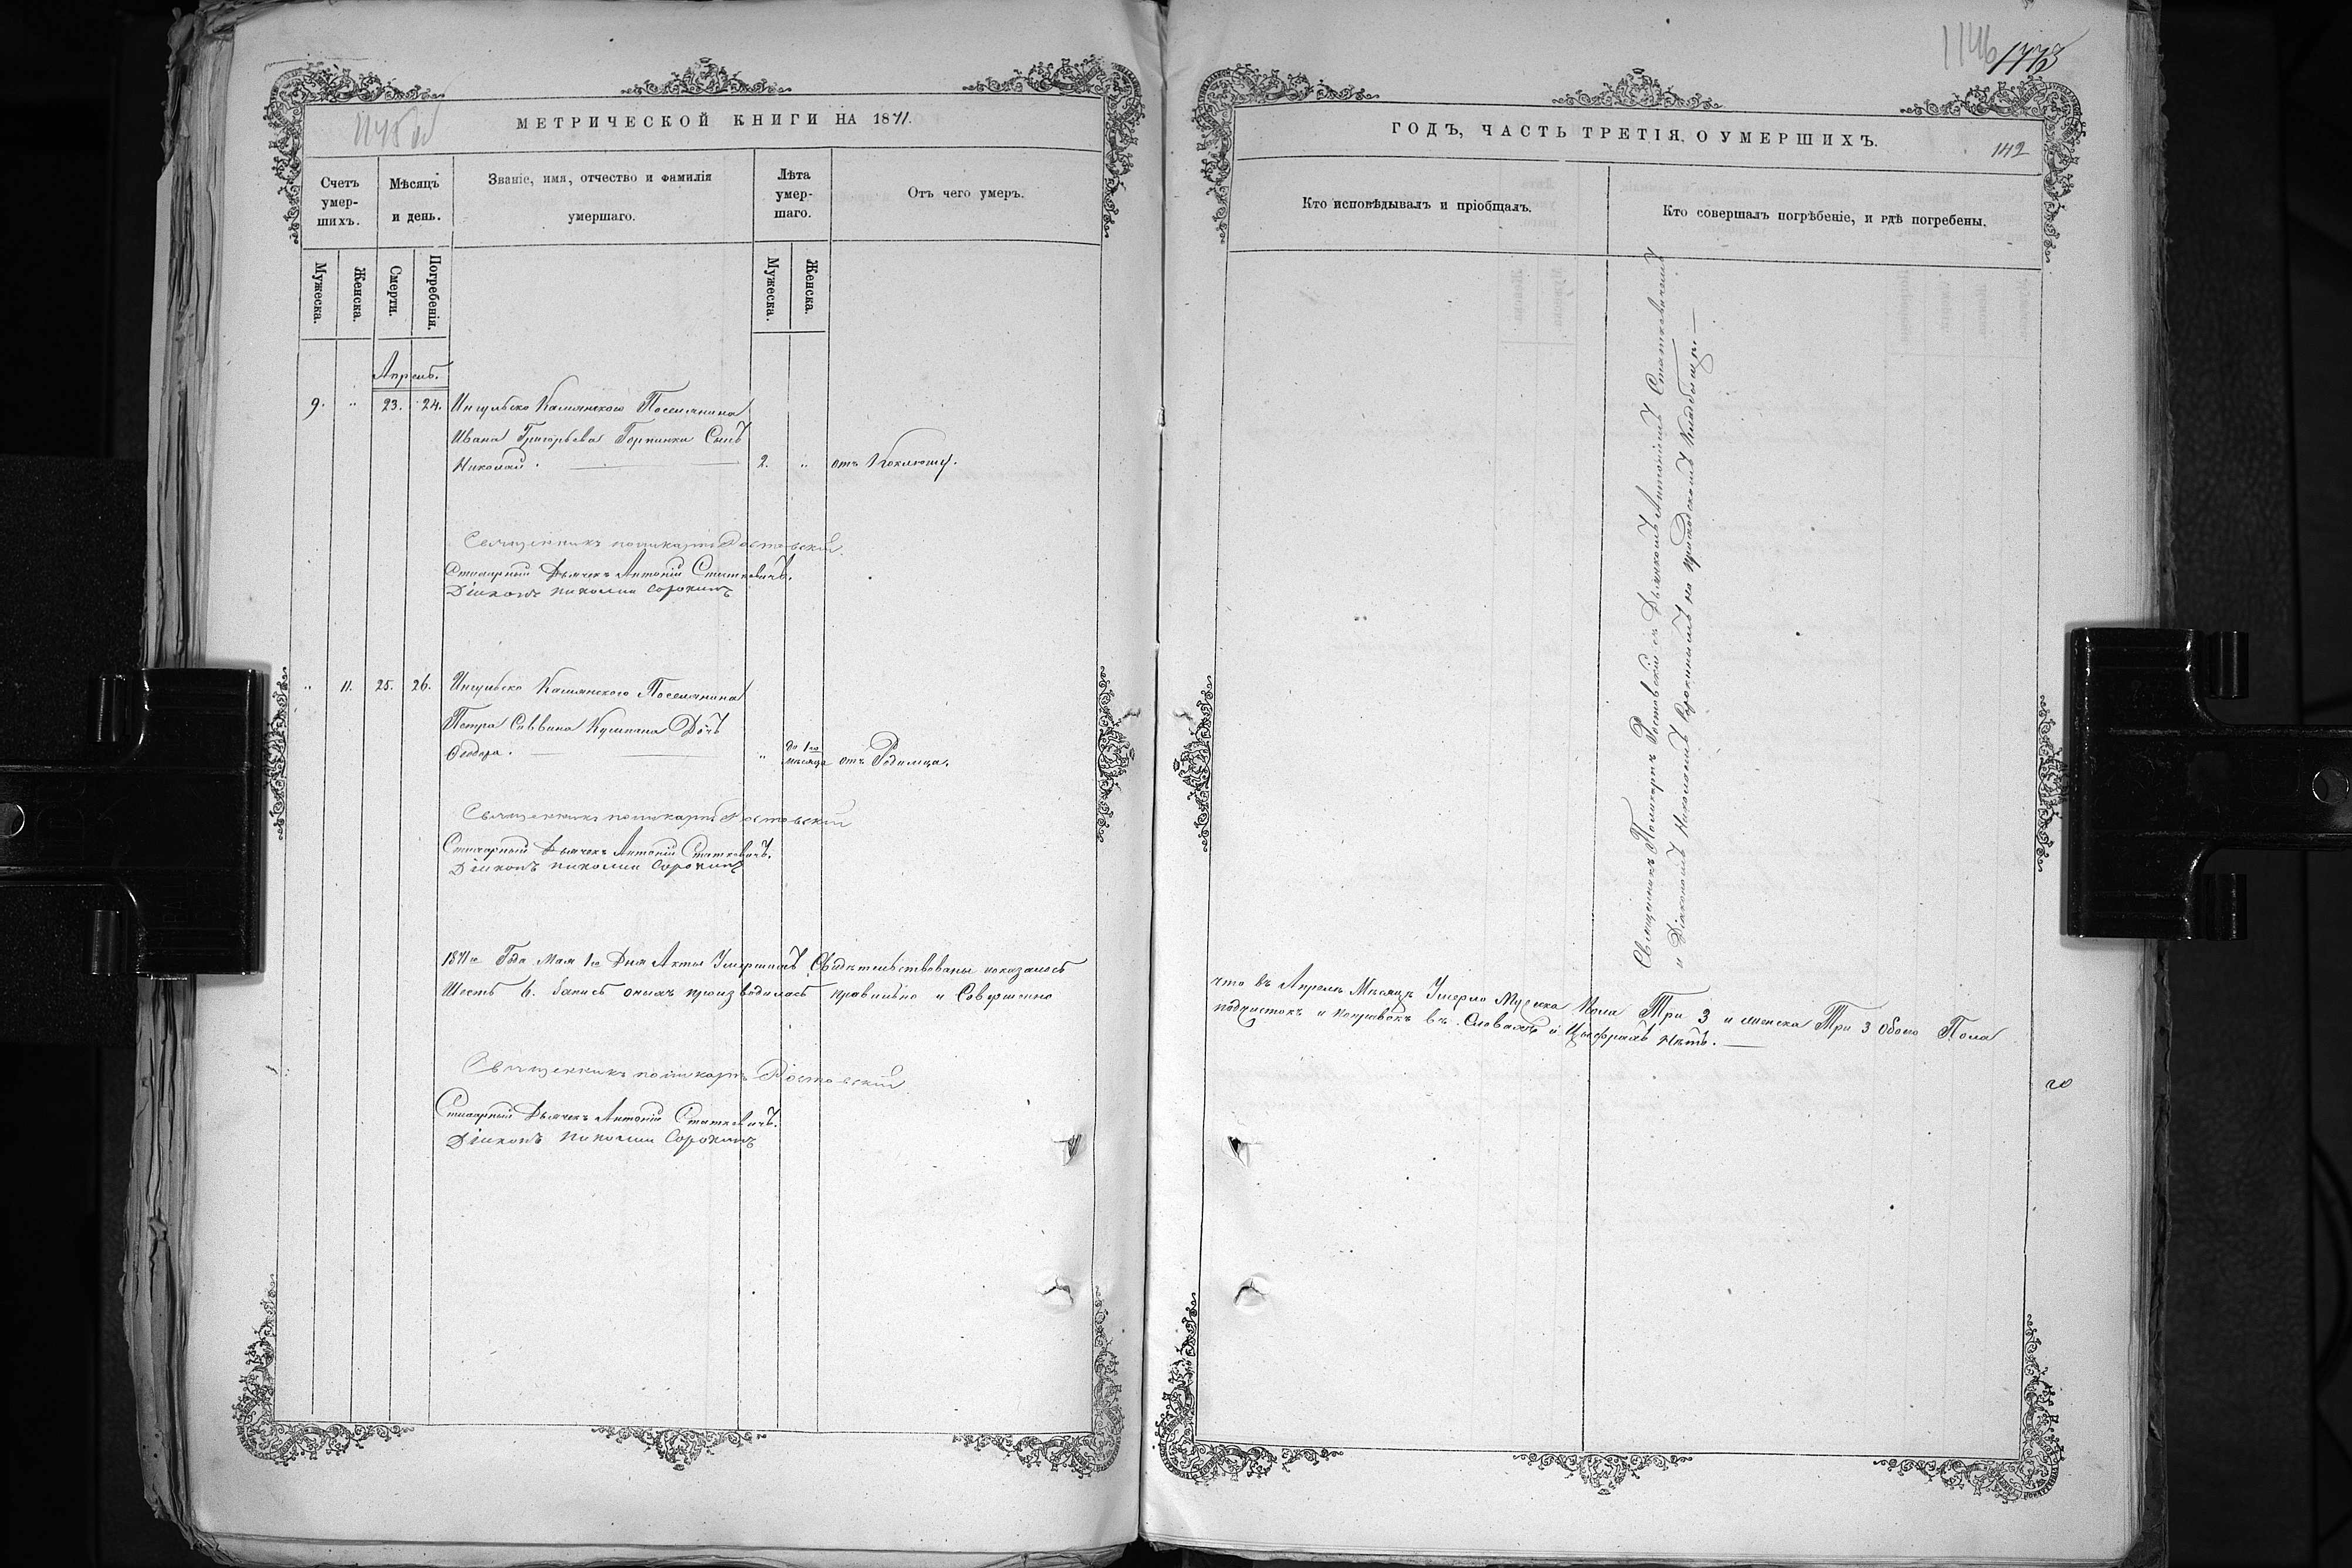 1146
1173
МЕТРИЧЕСКОЙ КНИГИ НА 1871.
Счетъ умер-
шихъ.
Мѣсяцъ
и день.
Званіе, имя, отчество и фамилія
умершаго.
Лѣта
умер-
шаго.
Отъ чего умеръ.
Мужеска.
Женска.
Смерти.
Погребенія.
Мужеска.
Женска.
Апрель.
9. " 23. 24. Ингульско Каменского Поселянина
Ивана Григорьева Горпинки Сынъ
Николай. 2. " отъ Коклюшу.
Священникъ Поликарпъ Ростовскій
Стихарный Дьячекъ Антоній Статкевичъ.
Діаконъ Николай Сорокинъ
" 11. 25. 26. Ингульско Каменского Поселянина
Петра Саввина Дочь
Феодора. " до 1го мѣсяца отъ Родимца.
Священникъ Поликарпъ Ростовскій
Стихарный Дьячекъ Антоній Статкевичъ.
Діаконъ Николай Сорокинъ
1871го Года Мая 1го Дня Акты Умершихъ Свидѣтельствованы показалось
Шесть 6. Запись оныхъ производилась правильно и Совершенно
Священникъ Поликарпъ Ростовскій
Стихарный Дьячекъ Антоній Статкевичъ.
Діаконъ Николай Сорокинъ
ГОДЪ, ЧАСТЬ ТРЕТІЯ, О УМЕРШИХЪ.
142
Кто исповѣдывалъ и пріобщалъ.
Кто совершалъ погрѣбеніе, и гдѣ погребены.
Священникъ Поликарпъ Ростовскій съ Дьячкомъ Антоніемъ Статкевичемъ
и Діакономъ Николаемъ Сорокинымъ на приходскомъ Кладбищѣ.
что въ Апрелѣ Мѣсяцѣ Умерло Мужеска Пола Три 3 и женска Три 3 обоего Пола
подчистокъ и поправокъ въ Словахъ и Цыфрахъ нѣтъ.